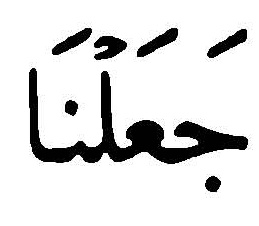 جَعَلْنَا